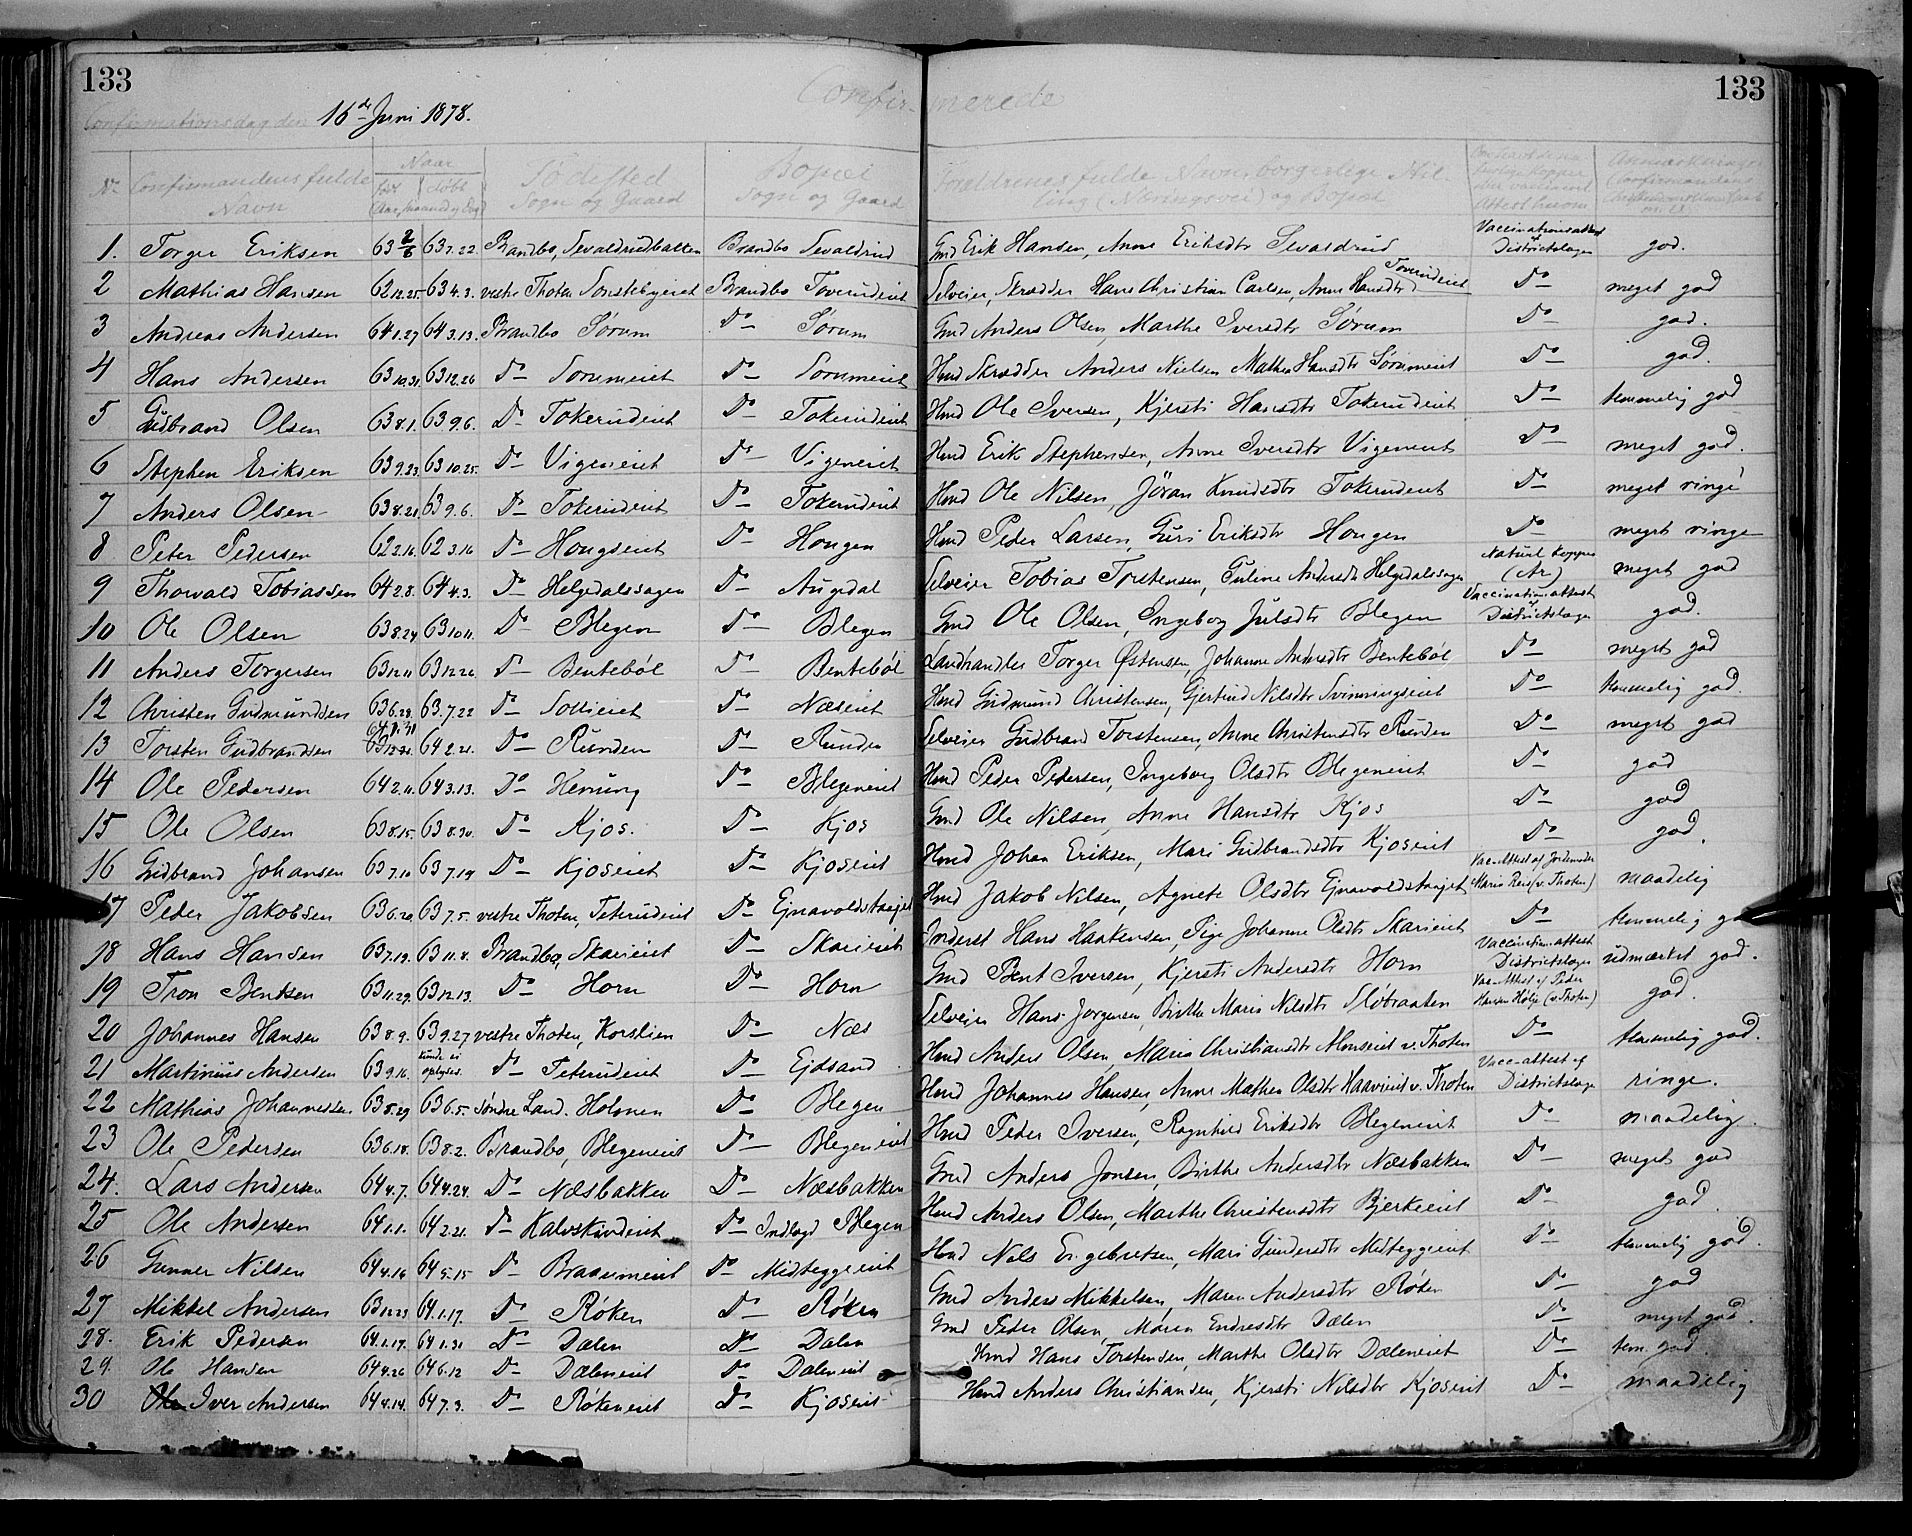 133
133
Confirmerede
Confirmationsdag den 16de Juni 1878.
No Confirmandens fulde Navn Naar født døbt Fødested Sogn og Gaard Bopæl Sogn og Gaard Forældrenes fulde Navn, borgerlige Stilling (Næringsvei) og Bopæl
1. Torger Eriksen 63 2/6 63 7.22. Brandbo, Sevaldrudbakken Brandbo Sevaldrud Gmd Erik Hansen, Anne Eriksdtr Sevaldrud Vaccinationsattest af Districtslægen god.
2 Mathias Hansen 62 12.25. 63 4.3. vestre Thoten Sønstebyeiet Brandbo Toverudeiet Selveier, Skrædder Hans Christian Carlsen, Anne Hansdtr Toverudeiet Do meget god
3 Andreas Andersen 64 1.27 64 3.13. Brandbo Sørum Do Sørum Gmd Anders Olsen, Marthe Iversdtr Sørum Do god.
4 Hans Andersen 63 10.31. 63 12.26 Do Sørumeiet Do Sørumeiet Hmd Skrædder Anders Nielsen Mathea Hansdtr Sørumeiet Do god.
5 Gudbrand Olsen 63 8.1. 63 9.6. Do Tokerudeiet Do Tokerudeiet Hmd Ole Iversen, Kjersti Hansdtr Tokerudeiet Do temmelig god
6 Stephen Eriksen 63 9.23. 63 10.25. Do Vigeneiet Do Vigeneiet Hmd Erik Stephensen, Anne Iversdtr Vigeneiet Do meget god.
7 Anders Olsen 63 8.21. 63 9.6. Do Tokerudeiet Do Tokerudeiet Hmd Ole Nilsen, Jøran Knudsdtr Tokerudeiet Do meget ringe
8 Peter Pedersen 62 2.16. 62 3.16 Do Hougseiet Do Hougen Hmd Peder Larsen, Guri Eriksdtr Hougen Do meget ringe
9 Thorvald Tobiassen 64 2.8. 64 4.3. Do Helgedalssagen Do Augedal Selveier Tobias Torstensen, Juline Andersdtr Helgedalssagen Naturl. Kopper (Ar) meget god
10 Ole Olsen 63 8.24 63 10.11. Do Blegen Do Blegen Gmd Ole Olsen, Ingeborg Julsdtr Blegen Vaccinationsattest af Districtslægen god.
11 Anders Torgersen 63 12.11 63 12.26. Do Bentebøl Do Bentebøl Landhandler Torger Østensen, Johanne Andersdtr Bentebøl Do meget god
12 Christen Gudmundsen 63 6.28. 63.7.22 Do Do Næseiet Hmd Gudmund Christensen, Gjertrud Nilsdtr Svinningseiet Do temmelig god.
13 Torsten Gudbrandsen 64 2.21. Do Runden Do Runden Selveier Gudbrand Torstensen, Anne Christensdtr Runden Do meget god
14 Ole Pedersen 64 2.11. 64 3.13. Do Hennung Do Blegeneiet Hmd Peder Pedersen, Ingeborg Olsdtr Blegeneiet Do god
15 Ole Olsen 63 8.15. 63 8.30. Do Kjos. Do Kjos Gmd Ole Nilsen, Anne Hansdtr Kjos Do god
16 Gudbrand Johansen 63 7.10 63 7.19 Do Kjoseiet Do Kjoseiet Hmd Johan Eriksen, Mari Gudbrandsdtr Kjoseiet Do god.
17 Peder Jakobsen 63 6.20. 63 7.5. vestre Thoten, Teterudeiet Do Ejnavoldstangen Hmd Jakob Nilsen, Agnete Olsdtr Ejnavoldstanget Vac-Attest af Jordemoder Maria (v. Thoten) maadelig
18 Hans Hansen 63 7.19. 63 11.8. Brandbo, Skarieiet Do Skarieiet Inderst Hans Haakensen, Pige Johanne Olsdtr Skarieiet Do temmelig god
19 Tron Bentsen 63 11.29. 63 12.13. Do Horn Do Horn Gmd Bent Iversen, Kjersti Andersdtr Horn Vaccinationsattest Districtslægen udmærket god.
20 Johannes Hansen 63 8.9. 63 9.27 vestre Thoten, Korslien Do Næs Selveier Hans Jørgensen, Birthe Maria Nilsdtr Sløbraaten Vac-Attest af Peder Hansen (v. Thoten) god.
21 Martinius Andersen 63 9.16. kunde ei oplyses. Do Teterudeiet Do Ejdsand Hmd Anders Olsen, Maria Christiansdtr v. Thoten Do temmelig god.
22 Mathias Johannessen 63 5.29 63 6.5. Søndre Land. Holmen Do Blegen Hmd Johannes Hansen, Anne Mathea Olsdtr Haavieiet v. Thoten Vacc-attest af Districtslæge ringe.
23 Ole Pedersen 63 6.18. 63 8.2. Brandbo, Blegeneiet Do Blegeneiet Hmd Peder Iversen, Ragnhild Eriksdtr Blegeneiet Do maadelig.
24. Lars Andersen 64 4.7. 64 4.24. Do Næsbakken Do Næsbakken Gmd Anders Jonsen, Birthe Andersdtr Næsbakken Do meget god
25 Ole Andersen 64 1.1. 64 2.21. Do Kalvskindeiet Do Indlagd Blegen Hmd Anders Olsen, Marthe Christensdtr Bjerkeeiet Do god.
26 Gunner Nilsen 64 4.16 64 5.15 Do Braaumeiet Do Midteggeeiet Hmd Nils Engebretsen, Mari Gundersdtr Midteggeeiet Do temmelig god.
27 Mikkel Andersen 63 12.23 64 1.17. Do Røken Do Røken Gmd Anders Mikkelsen, Maren Andersdtr Røken Do god
28. Erik Pedersen 64 1.17. 64 1.31 Do Dælen Do Dælen Gmd Peder Olsen, Maren Endresdtr Dælen Do meget god.
29. Ole Hansen 64 4.26 64 6.12 Do Dæleneiet Do Dæleneiet Hmd Hans Torstensen, Marthe Olsdtr Dæleneiet Do tem. god.
30 Iver Andersen 64 4.14. 64 7.3. Do Røkeneiet Do Kjoseiet Hmd Anders Christiansen, Kjersti Nilsdtr Kjoseiet Do maadelig